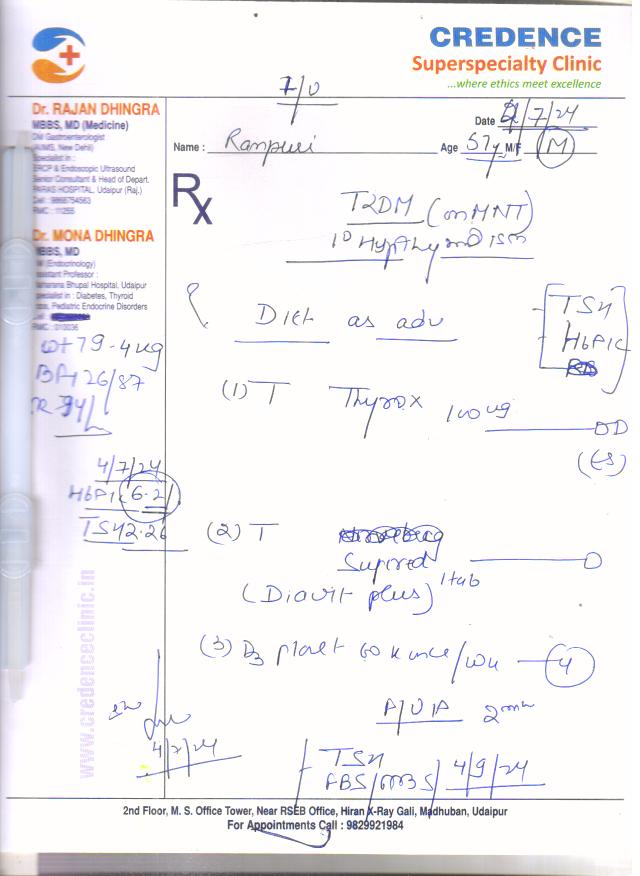 CREDENCE
Superspecialty Clinic
...where ethics meet excellence
F/U
Dr. RAJAN DHINGRA
MBBS, MD (Medicine)
DM Gastroenterologist
(AIIMS, New Delhi)
Specialist in :
ERCP & Endoscopic Ultrasound
Senior Consultant & Head of Depart.
PARAS HOSPITAL, Udaipur (Raj.)
RMC : 11255
Dr. MONA DHINGRA
MBBS, MD
DM (Endocrinology)
Assistant Professor :
Bhupal Hospital, Udaipur
Specialist in : Diabetes, Thyroid
Pediatric Endocrine Disorders
RMC : 010036
Date 4/7/24
Name : Age 57y M/F M
Rx
T2DM (on MNT)
1° Hypothyroidism
Diet as adv
TSH
HbA1c
Wt 79.4kg
BP 126/87
(1) T Thyrox 100ug OD
(ES)
4/7/24
HbA1c 6.2
TSH 2.26
(2) T
1 tab
(Diavit plus)
(3) D3 60 K once/wk 4
2
4/7/24
TSH
FBS 4/9/24
www.credenceclinic.in
2nd Floor, M. S. Office Tower, Near RSEB Office, Hiran X-Ray Gali, Madhuban, Udaipur
For Appointments Call : 9829921984